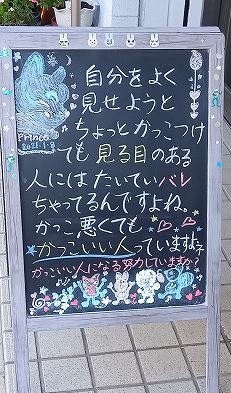 自分をよく
見せようと
ちょっとかっこつけ
ても見る目のある
人にはたいていバレ
ちゃってるんですよね。
かっこ悪くても
かっこいい人っていますよネ
かっこいい人になる努力していますか?
Prince
2021.1.8